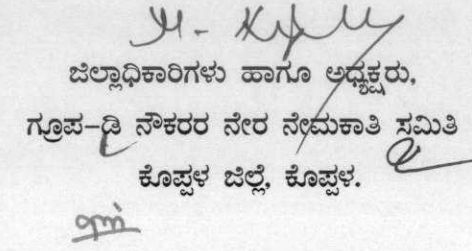 ಜಿಲ್ಲಾಧಿಕಾರಿಗಳು ಹಾಗೂ ಅಧ್ಯಕ್ಷರು,
ಗ್ರೂಪ-ಡಿ ನೌಕರರ ನೇರ ನೇಮಕಾತಿ ಸಮಿತಿ
ಕೊಪ್ಪಳ ಜಿಲ್ಲೆ, ಕೊಪ್ಪಳ.